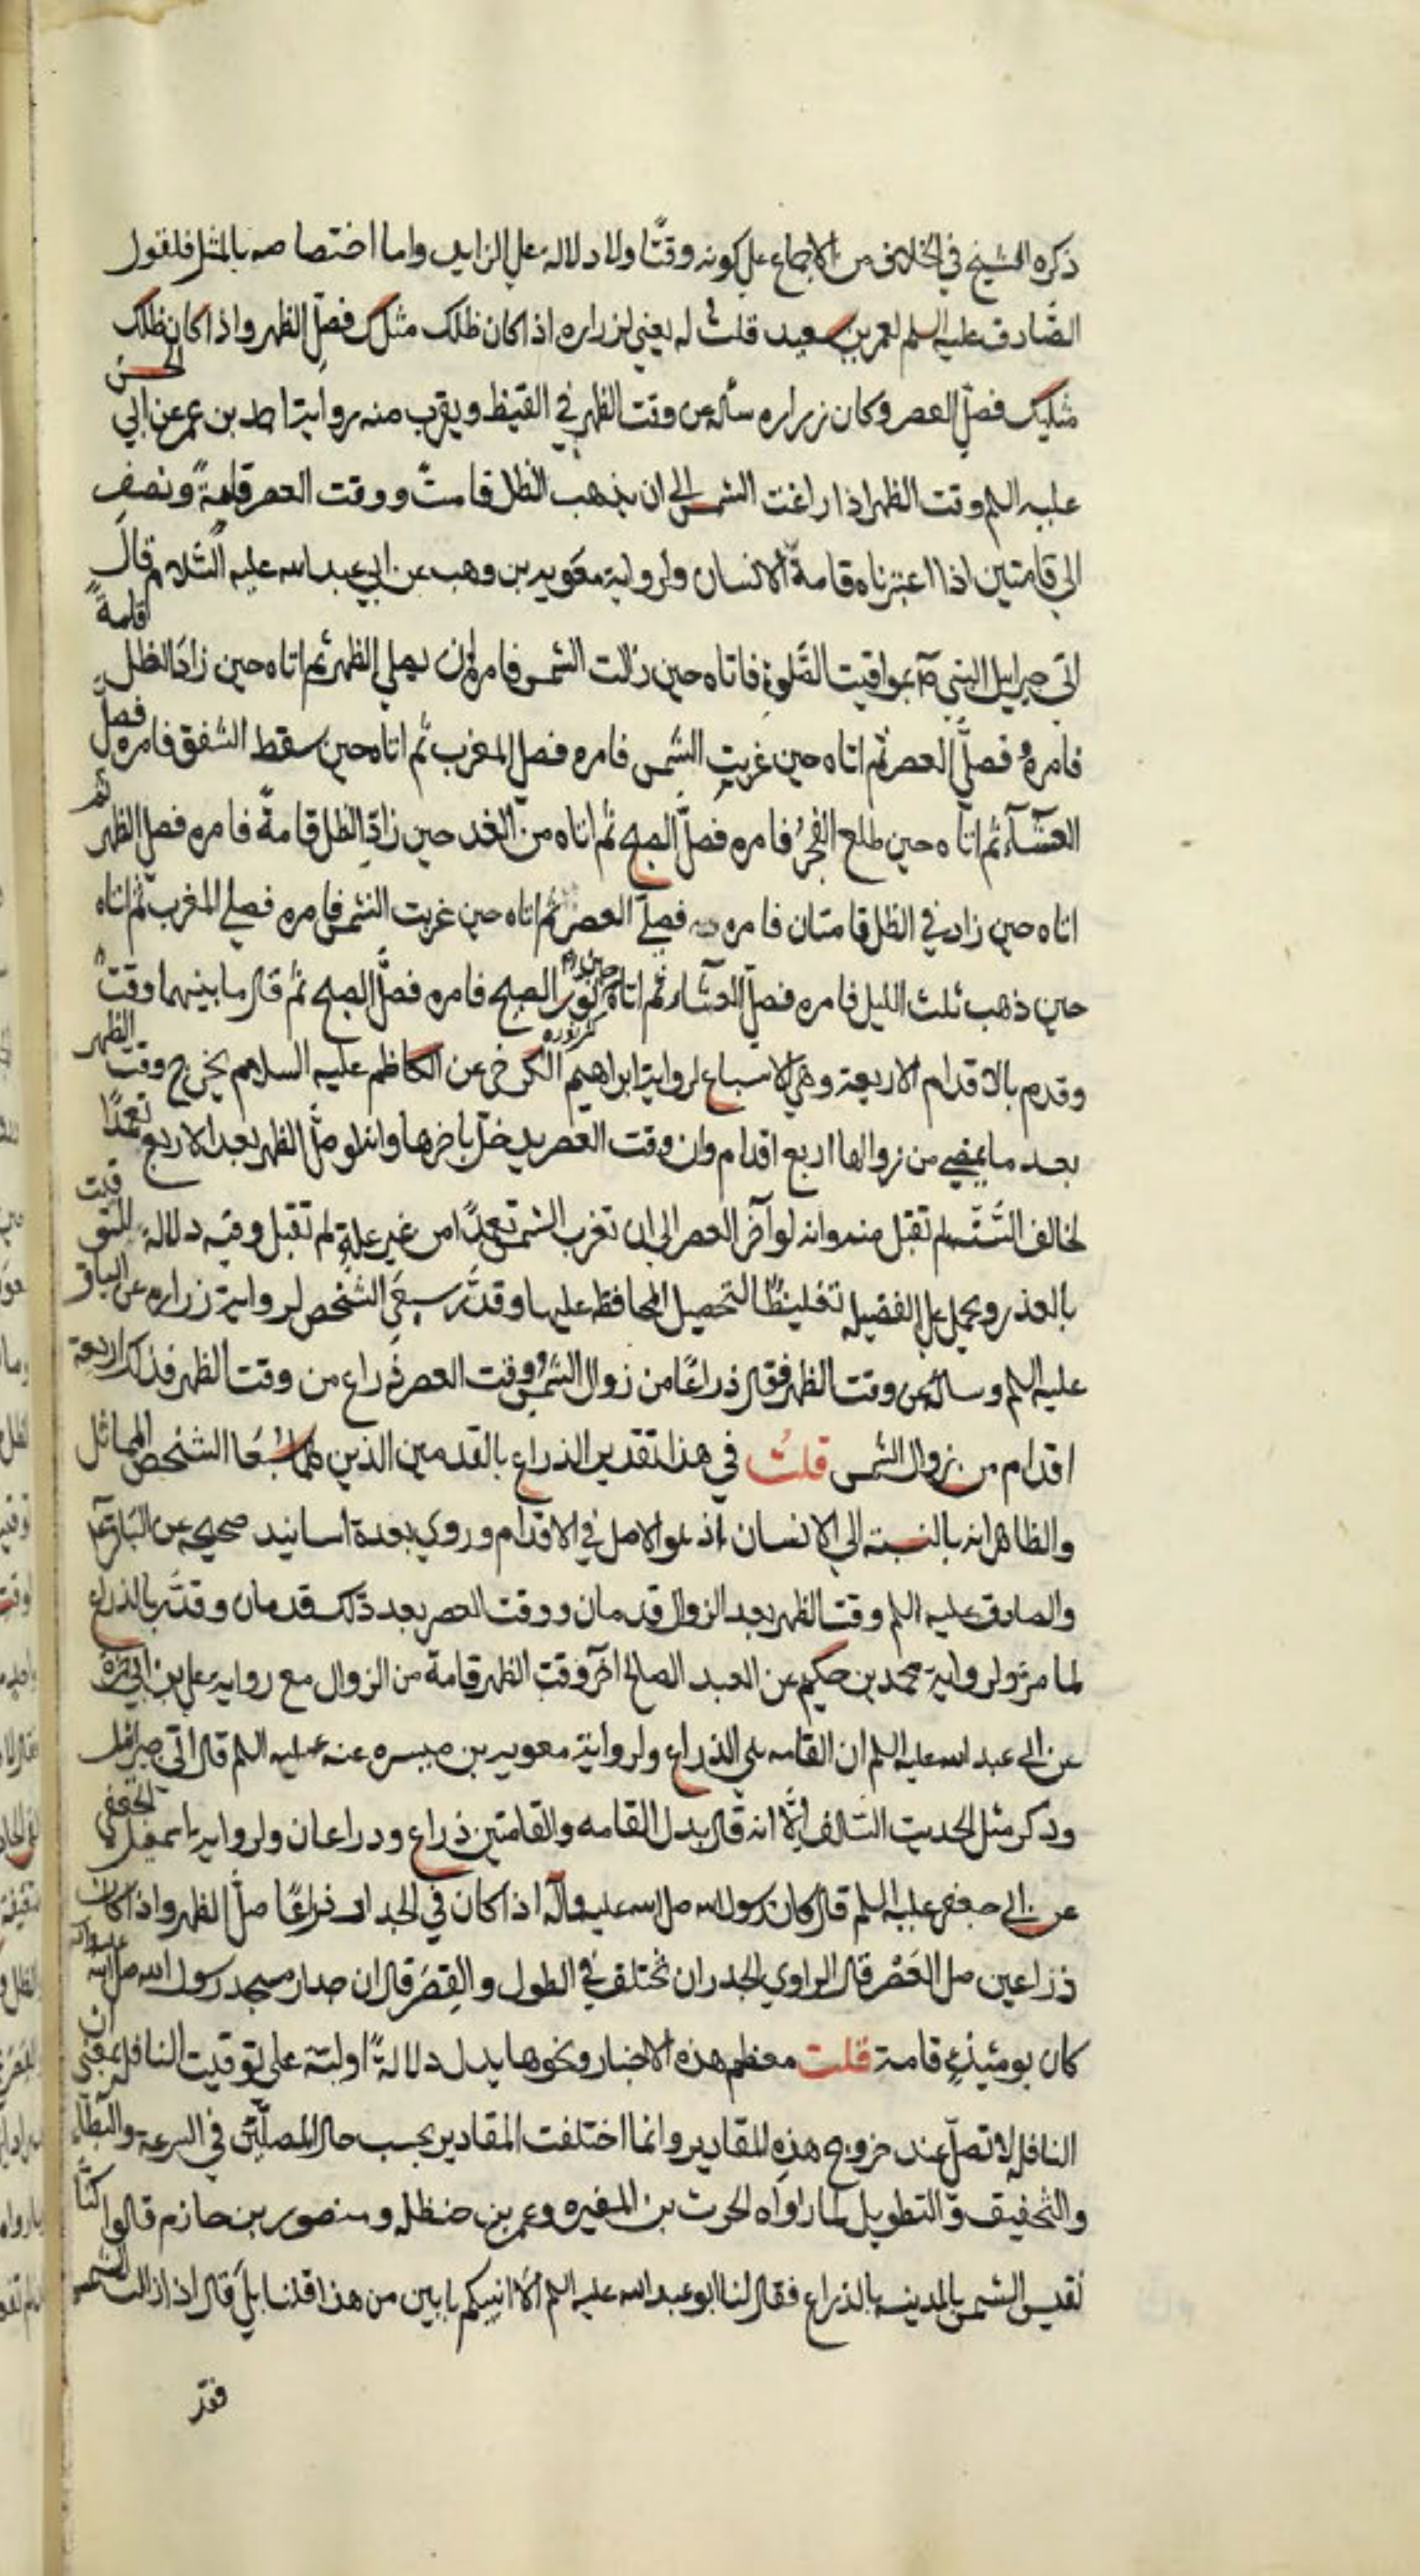 ذكره الشيخ في الخلاف من الاجماع علي كونه وقتًا ولا دلالة علي الزايد واما اختصاصه بالمثل فلقول
الصّادق عليه السلم لعمر بن سعيد قلت له يعني لزراره اذا كان ظلك مثلك فصلّ الظهر واذا كان ظلك
مثليك فصلّ العصر وكان زراره سأله عن وقت الظهر في القيظ ويقرب منه رواية احمد بن عمر عن ابي الحسن
عليه السلم وقت الظهر اذا راغت الشمس الي ان يذهب الظل قامتً ووقت العصر قامة ونصف
الي قامتين اذا اعتبرناه قامة الانسان ولرواية معويه بن وهب عن ابي عبد الله عليه السّلام قال
اتي جبرايل النبي صم بمواقيت الصّلوة فاتاه حين زالت الشمس فامره ان يصلي الظهر ثم اتاه حين زاد الظل قامةً
فامره فصلّي العصر ثم اتاه حين غربت الشمس فامره فصلّ المغرب ثم اتاه حين سقط الشفق فامره فصلّ
العشآء ثم اتاه حين طلع الفجر فامره فصلّ الصبح ثم اتاه من الغد حين زاد الظل قامةً فامره فصلّ الظهر ثم
اتاه حين زاد في الظل قامتان فامره فصلّي العصر ثم اتاه حين غربت الشمس فامره فصلي المغرب ثم اتاه
حين ذهب ثلث الليل فامره فصلّ العشاء ثم اتاه حين نوّر الصبح فامره فصلّ الصبح ثم قال ما بينهما وقت
وقدم بالاقدام الاربعة وهي الاسباع لرواية ابراهيم الكرخي عن الكاظم عليه السلام يخرج وقت الظهر
بعد ما يمضي من زوالها اربع اقدام وان وقت العصر يدخل باخرها وانه لو صلّ الظهر بعد الاربع تعمدًا
لخالف السّنّة لم تقبل منه وانه لو آخر العصر الي ان تغرب الشمس تعمدًا من غير علة لم تقبل وفيه دلالة للتوقيت
بالعذر ويحمل علي الفضيلة تغليظًا لتحصيل المحافظة عليها وقدّر بسبعي الشخص لرواية زراره عن الباقر
عليه السلم وساله عن وقت الظهر فقال ذراعًا من زوال الشمس ووقت العصر ذراع من وقت الظهر فذلك اربعة
اقدام من زوال الشمس قلت في هذا تقدير الذراع بالقدمين الذين هما سُبُعَا الشخص المماثل
والظاهر انه بالنسبة الي الانسان اذ هو الاصل في الاقدام وروي بعدة اسانيد صحيحه عن الباقر
والصادق عليه السلم وقت الظهر بعد الزوال قدمان ووقت العصر بعد ذلك قدمان وقدّر بالذراع
لما مر ولرواية محمد بن حكيم عن العبد الصالح آخر وقت الظهر قامة من الزوال مع رواية علي بن ابي حمزه
عن ابي عبد الله عليه السلم ان القامه هي الذراع ولرواية معويه بن ميسره عنه عليه السلم قال اتي جبرائيل
وذكر مثل الحديت السّالف الّا انه قال بدل القامه والقامتين ذراع وذراعان ولرواية اسمعيل الجعفي
عن ابي جعفر عليه السلم قال كان رسول الله صل الله عليه وآله اذا كان في الجدار ذراعًا صلّ الظهر واذا كان
ذراعين صل العَصْر قال الراوي الجدران تختلف في الطول والقِصَر قال ان جدار مسجد رسول الله صل الله عليه وآله
كان يومئيذٍ قامة قلت معظم هذه الاخبار ونحوها يدل دلالةً اوليّة علي توقيت النافلة بمعني ان
النافله لا تصلّ عند خروج هذه المقادير وانما اختلفت المقادير بحسب حال المصلّين في السرعة والبطآء
والتّخفيف والتطويل لما رواه الحرث بن المغيره وعمر بن حنظله ومنصور بن حازم قالوا كنّا
نقيس الشمس بالمدينة بالذراع فقال لنا ابو عبد الله عليه السلم ألا انبيكم بابين من هذا قلنا بلَي قال اذا زالت الشمس
فقد